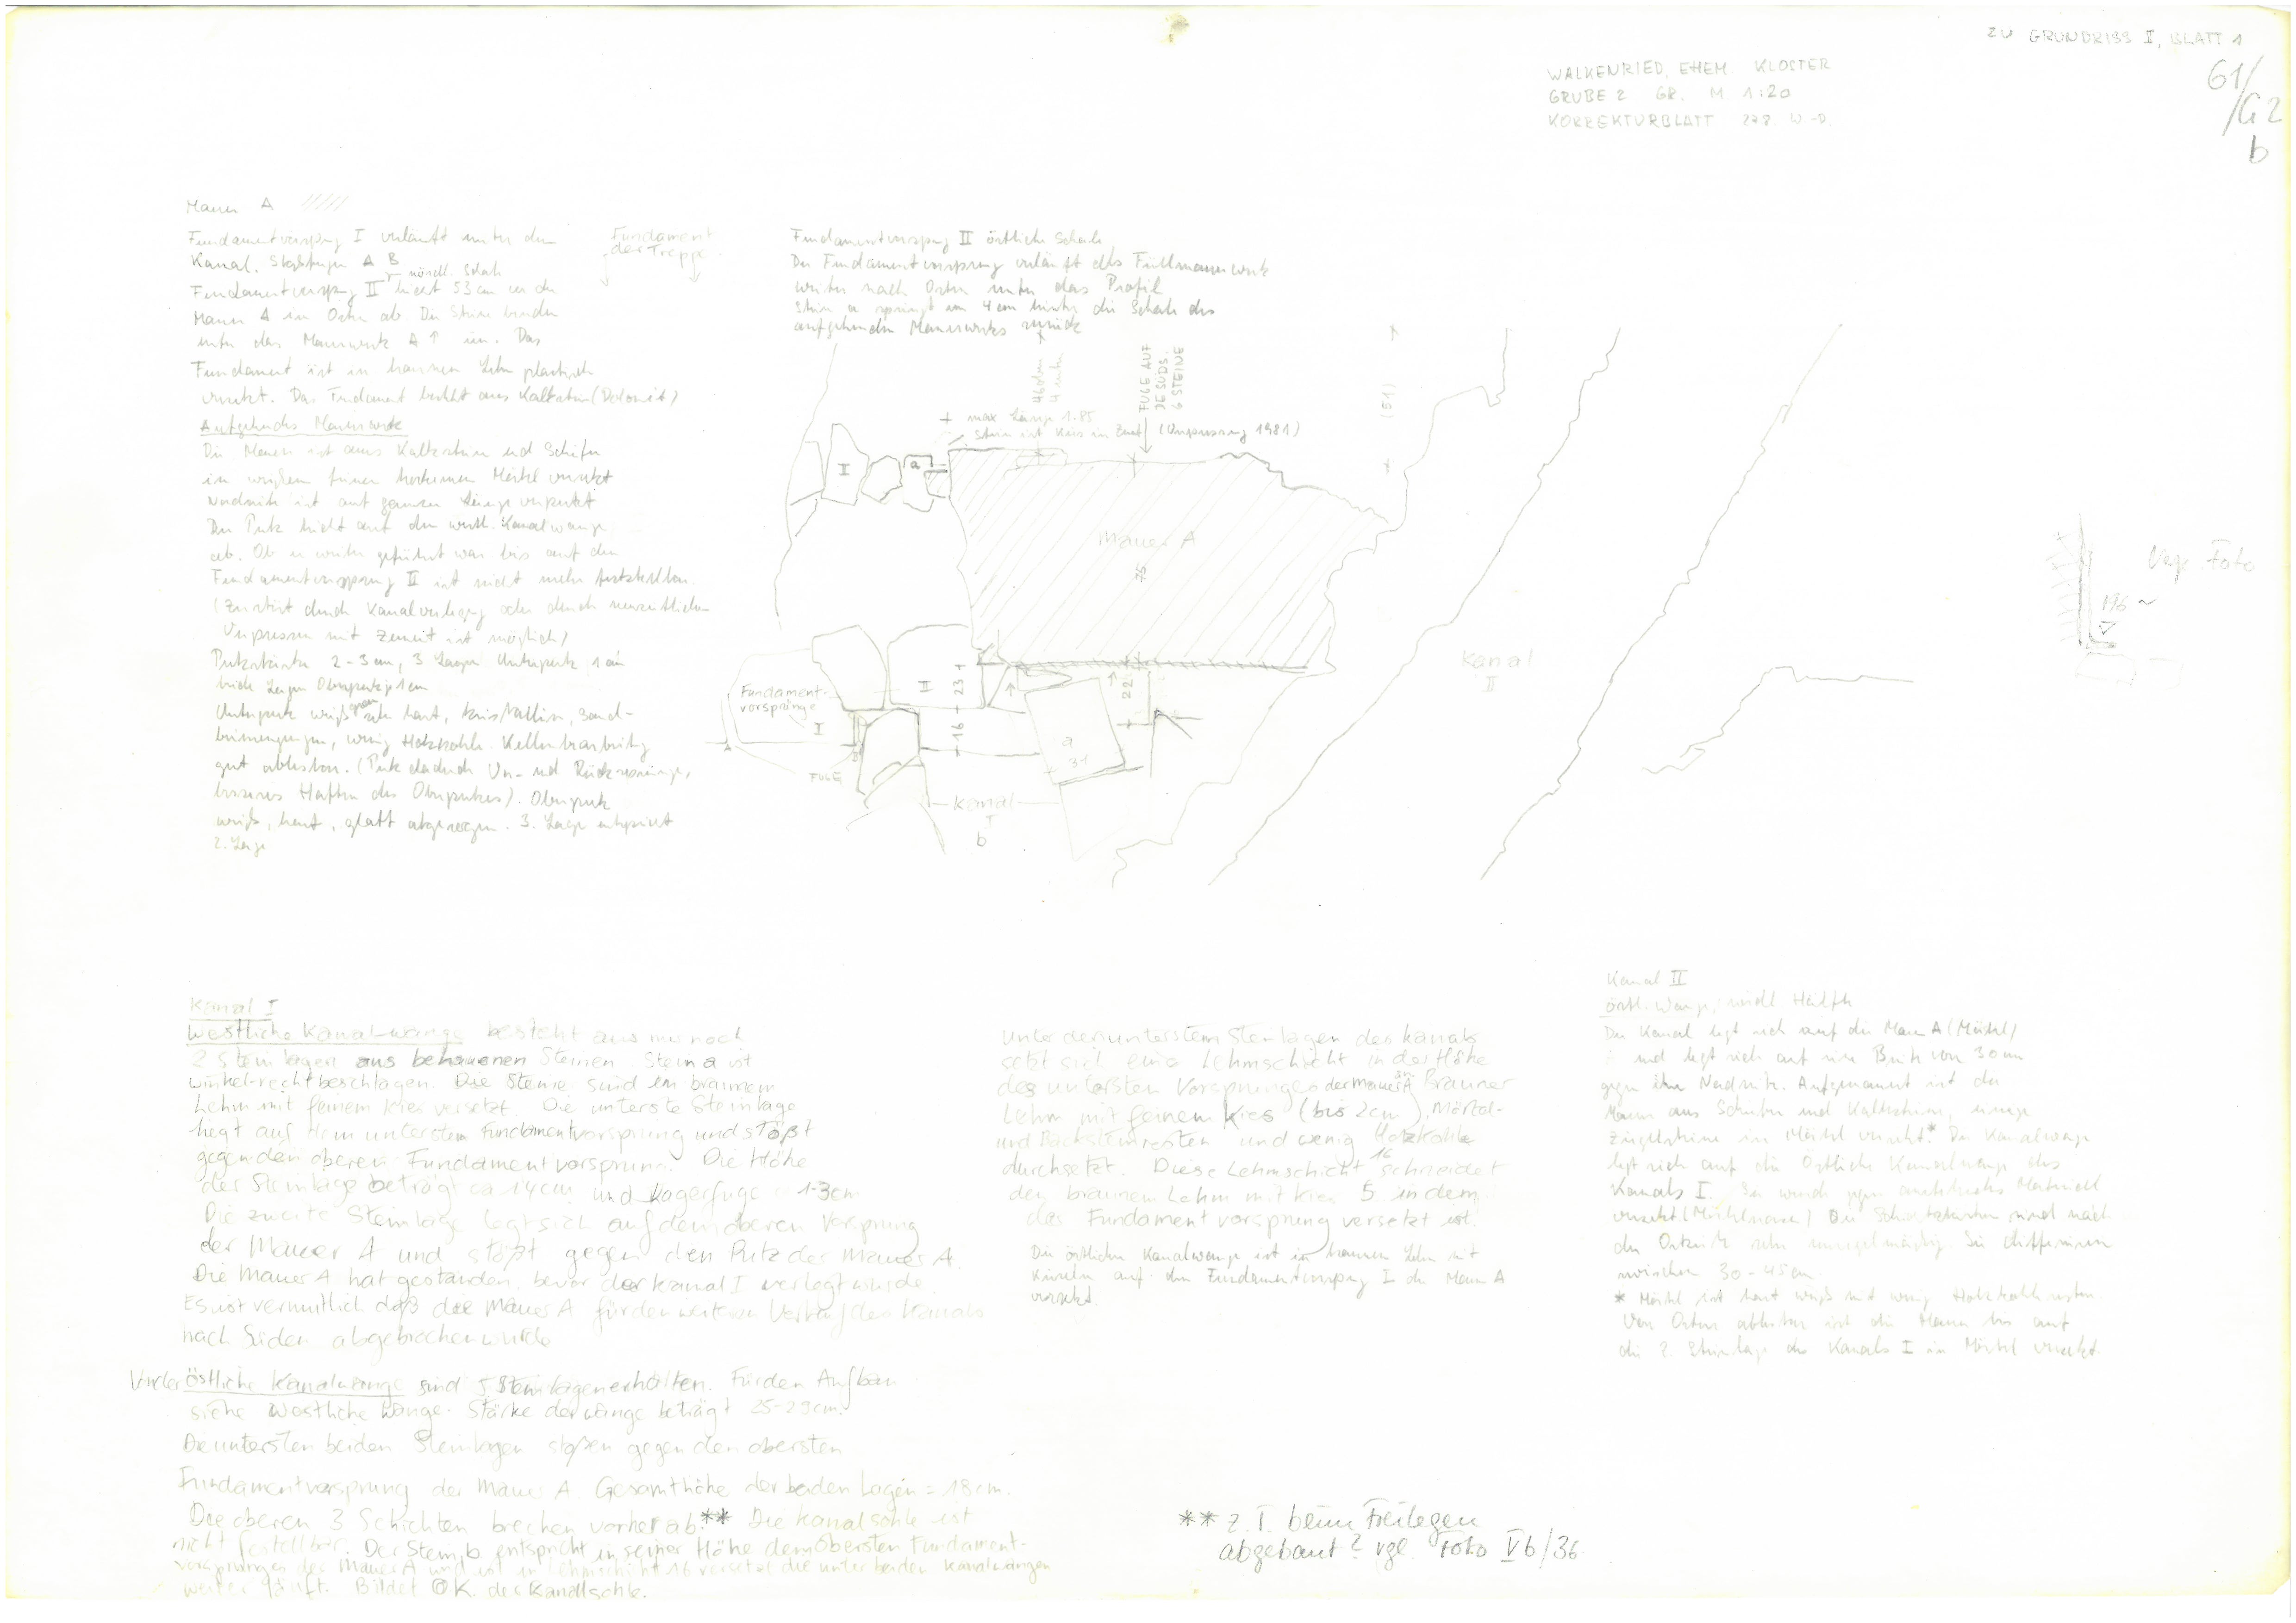 ZU GRUNDRISS II, BLATT 1
WALKENRIED, EHEM. KLOSTER
GRUBE 2 GR. M 1:20
KORREKTURBLATT 27.8. W.-D.
61/
/G2
b
Mauer A
Fundamentvorsprung I verläuft unter dem
Kanal. A B
nördl. Schale
Fundamentvorsprung II bricht 53 cm vor der
Mauer A im Osten ab. Die Steine binden
unter das Mauerwerk A ↑ ein. Das
Fundament ist in braunem Lehm plastisch
versetzt. Das Fundament besteht aus Kalkstein (Dolomit)
Aufgehendes Mauerwerk
Die Mauer ist aus Kalkstein und Schiefer
in weißem feinen Mörtel versetzt
Nordseite ist auf ganzer Länge verputzt
Der Putz bricht auf der westl. Kanalwange
ab. Ob er weiter geführt war bis auf den
Fundamentvorsprung II ist nicht mehr feststellbar.
(Zerstört durch Kanalverlegung oder durch neuzeitliches
Verpressen mit Zement ist möglich)
Putzstärke 2-3 cm, 3 Lagen Unterputz 1 cm
beide Lagen Oberputz je 1 cm
Unterputz weißgrau sehr hart, kristallin, Sand-
beimengungen, wenig Holzkohle. Kellenbearbeitung
gut ablesbar. (Putz dadurch Vor- und Rücksprünge,
besseres Haften des Oberputzes). Oberputz
weiß, hart, glatt abgezogen. 3. Lage entspricht
2. Lage
Fundament
der Treppe
Fundamentvorsprung II östliche Schale
Der Fundamentvorsprung verläuft als Füllmauerwerk
weiter nach Osten unter das Profil
Stein a springt um 4 cm hinter die Schale des
aufgehenden Mauerwerks zurück
FUGE AUF
JE SÜDS.
6 STEINE
(51)
+ max Länge 1.85
(Verpressung 1981)
II
a
Mauer A
75
Fundament-
vorsprünge
I
II
23
16
22
FUGE
a
31
Kanal
I
b
Kanal
II
196
Vgl. Foto
Kanal I
Westliche Kanalwange besteht aus nur noch
2 Steinlagen aus behauenen Steinen. Stein a ist
winkelrecht beschlagen. Die Steine sind in braunem
Lehm mit feinem Kies versetzt. Die unterste Steinlage
liegt auf dem untersten Fundamentvorsprung und stößt
gegen den oberen Fundamentvorsprung. Die Höhe
der Steinlage beträgt ca 14cm und Lagerfuge 1-3cm
Die zweite Steinlage legt sich auf den oberen Vorsprung
der Mauer A und stößt gegen den Putz der Mauer A.
Die Mauer A hat gestanden, bevor der Kanal I verlegt wurde.
Es ist vermutlich daß die Mauer A für den weiteren Verlauf des Kanals
nach Süden abgebrochen wurde
Von der östliche Kanalwange sind 5 Steinlagen erhalten. Für den Aufbau
siehe Westliche Wange. Stärke der Wange beträgt 25-29cm.
Die untersten beiden Steinlagen stoßen gegen den obersten
Fundamentvorsprung der Mauer A. Gesamthöhe der beiden Lagen = 18cm.
Die oberen 3 Schichten brechen vorher ab.** Die Kanalsohle ist
nicht feststellbar. Der Stein b entspricht in seiner Höhe dem obersten Fundament-
vorsprunges der Mauer A und ist in Lehmschicht 16 versetzt die unter beiden Kanalwangen
weiter läuft. Bildet OK. der Kanalsohle.
Unter den untersten Steinlagen des Kanals
setzt sich eine Lehmschicht in der Höhe
des untersten Vorsprunges der Mauer A an. Brauner
Lehm mit feinem Kies (bis 2cm), Mörtel-
und Backsteinresten und wenig Holzkohle
durchsetzt. Diese Lehmschicht 16 schneidet
den braunen Lehm mit Kies 5 in dem
das Fundamentvorsprung versetzt ist.
Die östliche Kanalwange ist in braunem Lehm mit
Kieseln auf den Fundamentvorsprung I der Mauer A
versetzt.
Kanal II
östl. Wange, nördl Hälfte
Der Kanal legt sich auf die Mauer A (Mörtel)
und legt sich auf eine Breite von 30 cm
gegen ihre Nordseite. Aufgemauert ist die
Mauer aus Schiefer und Kalkstein, einige
Ziegelsteine in Mörtel versetzt.* Die Kanalwange
legt sich auf die östliche Kanalwange des
Kanals I. Sie wurde gegen anstehendes Material
versetzt (Mörtelnasen) Die sind nach
der Ostseite sehr unregelmäßig. Sie differieren
zwischen 30-45cm.
* Mörtel ist hart weiß mit wenig Holzkohleresten.
Von Osten ablesbar ist die Mauer bis auf
die 2. Steinlage des Kanals I in Mörtel versetzt.
** z.T. beim Freilegen
abgebaut? vgl. Foto Vb/36